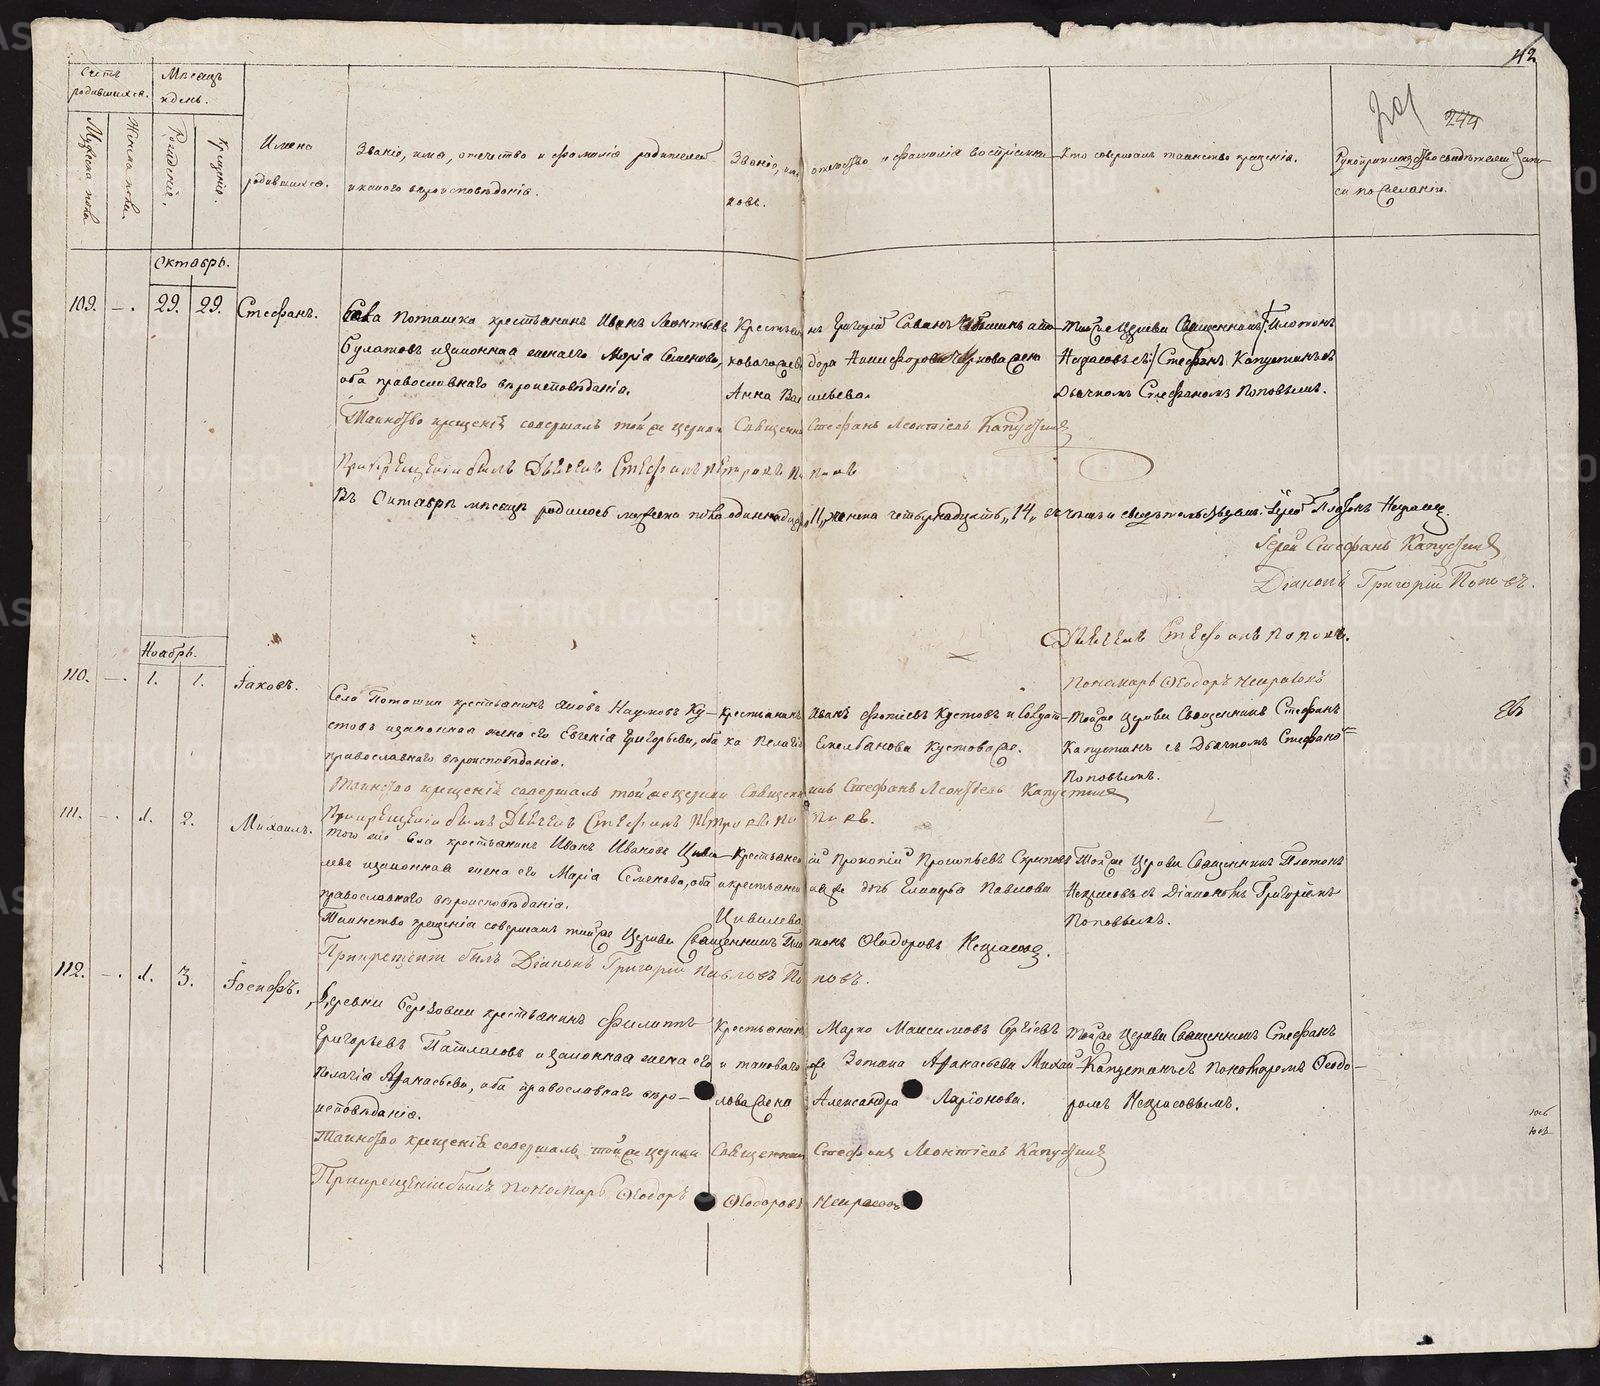 42
201 244
Счетъ родившихся.
Мѣсяцъ и день.
Мужеска пола.
Женска пола.
Рожденія.
Крещенія.
Имена родившихся.
Званіе, имя, отечество и фамилія родителей
и какого вѣроисповѣданія.
Званіе, имя, отечество и фамилія воспріемни-
ковъ.
Кто совершалъ таинство крещенія.
Рукоприкладство свидѣтелей запи-
си по желанію.
Октябрь.
109. —. 29. 29. Стефанъ.
Села Поташка крестьянинъ Иванъ Леонтьевъ
Булатовъ и законная жена его Марія Семенова,
оба православнаго вѣроисповѣданія.
Крестьянинъ Григорій Саввинъ
дора Никифорова жена
Анна Васильева.
Тойже Церкви Священникъ Платонъ
Некрасовъ Стефанъ Капустинъ съ
Дьячкомъ Стефаномъ Поповымъ.
Таинство крещенія совершалъ той же церкви Священникъ Стефанъ Леонтіевъ Капустинъ
При крещеніи былъ Дьячекъ Стефанъ Петровъ Поповъ
Въ Октябрѣ мѣсяцѣ родилось мужеска пола одиннадцать „11„ женска четырнадцать „14„ Іерей Платонъ Некрасовъ.
Іерей Стефанъ Капустинъ
Діаконъ Григорій Поповъ.
Дьячекъ Стефанъ Поповъ.
Пономарь Ѳеодоръ Некрасовъ
Ноябрь.
110. —. 1. 1. Іаковъ.
Села Поташки крестьянинъ Наумовъ Ку-
стовъ и законная жена его Евгенія Григорьева, оба
православнаго вѣроисповѣданія.
Крестьянинъ Иванъ Фотіевъ Кустовъ и
ка Пелагія Кустова же.
Тойже Церкви Священникъ Стефанъ
Капустинъ съ Дьячкомъ Стефано=
Поповымъ.
Таинство крещенія совершалъ той же церкви Священникъ Стефанъ Леонтьевъ Капустинъ
При крещеніи былъ Дьячекъ Стефанъ Петровъ Поповъ.
111. —. 1. 2. Михаилъ.
Того же села крестьянинъ Иванъ Ивановъ Циви-
левъ и законная жена его Марія Семенова, оба
православнаго вѣроисповѣданія.
Прокопій Прокопьевъ Скриповъ
и крестьянская же дочь Павлова
Цивилева
Тойже Церкви Священникъ Платонъ
Некрасовъ съ Діакономъ Григоріемъ
Поповымъ.
Таинство крещенія совершалъ тойже Церкви Священникъ Платонъ Ѳеодоровъ Некрасовъ.
При крещеніи былъ Діаконъ Григорій Павловъ Поповъ.
112. —. 1. 3. Іосифъ.
Деревни Березовки крестьянинъ Филиппъ
Григорьевъ Паталасовъ и законная жена его
Пелагія Афанасьева, оба православнаго вѣро-
исповѣданія.
Крестьянинъ Марко Максимовъ Сергіевъ
и таковаго же Зотика Афанасьева Михай-
лова жена Александра Ларіонова.
Тойже Церкви Священникъ Стефанъ
Капустинъ съ Пономаремъ Ѳеодо-
ромъ Некрасовымъ.
Таинство крещенія совершалъ той же церкви Священникъ Стефанъ Леонтіевъ Капустинъ
При крещеніи былъ Пономарь Ѳеодоръ Ѳеодоровъ Некрасовъ
METRIKI.GASO-URAL.RU